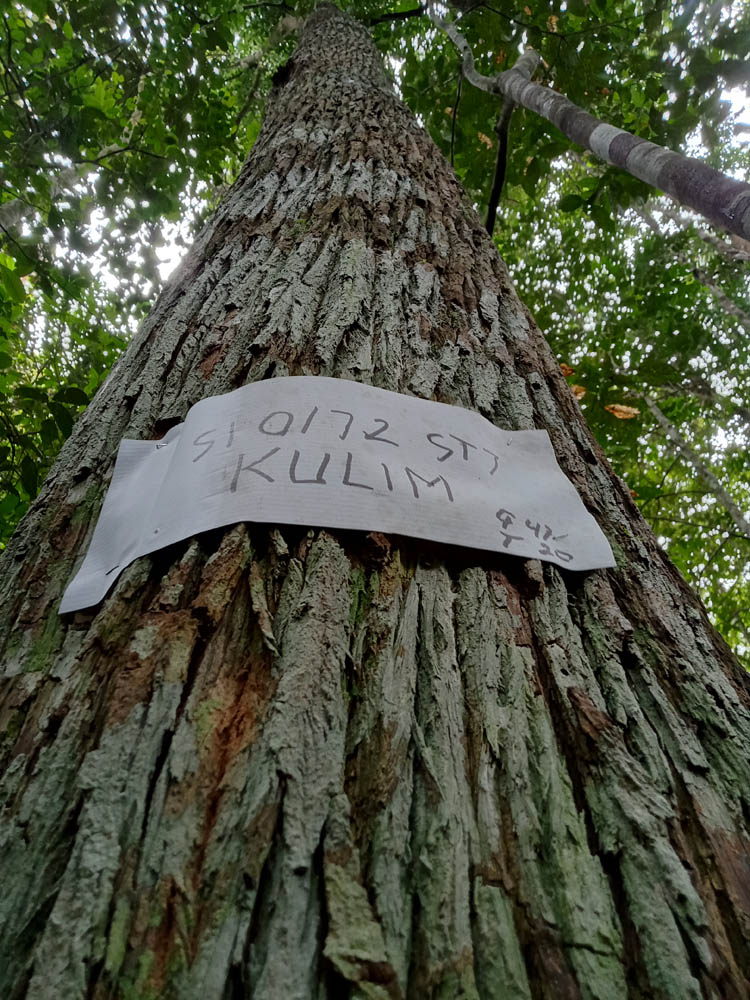 S1 0172 ST7
KULIM
T 20